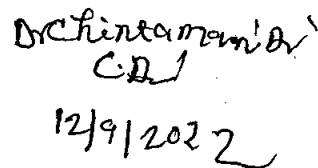 DrChintamani Dr
C.D
12/9/2022